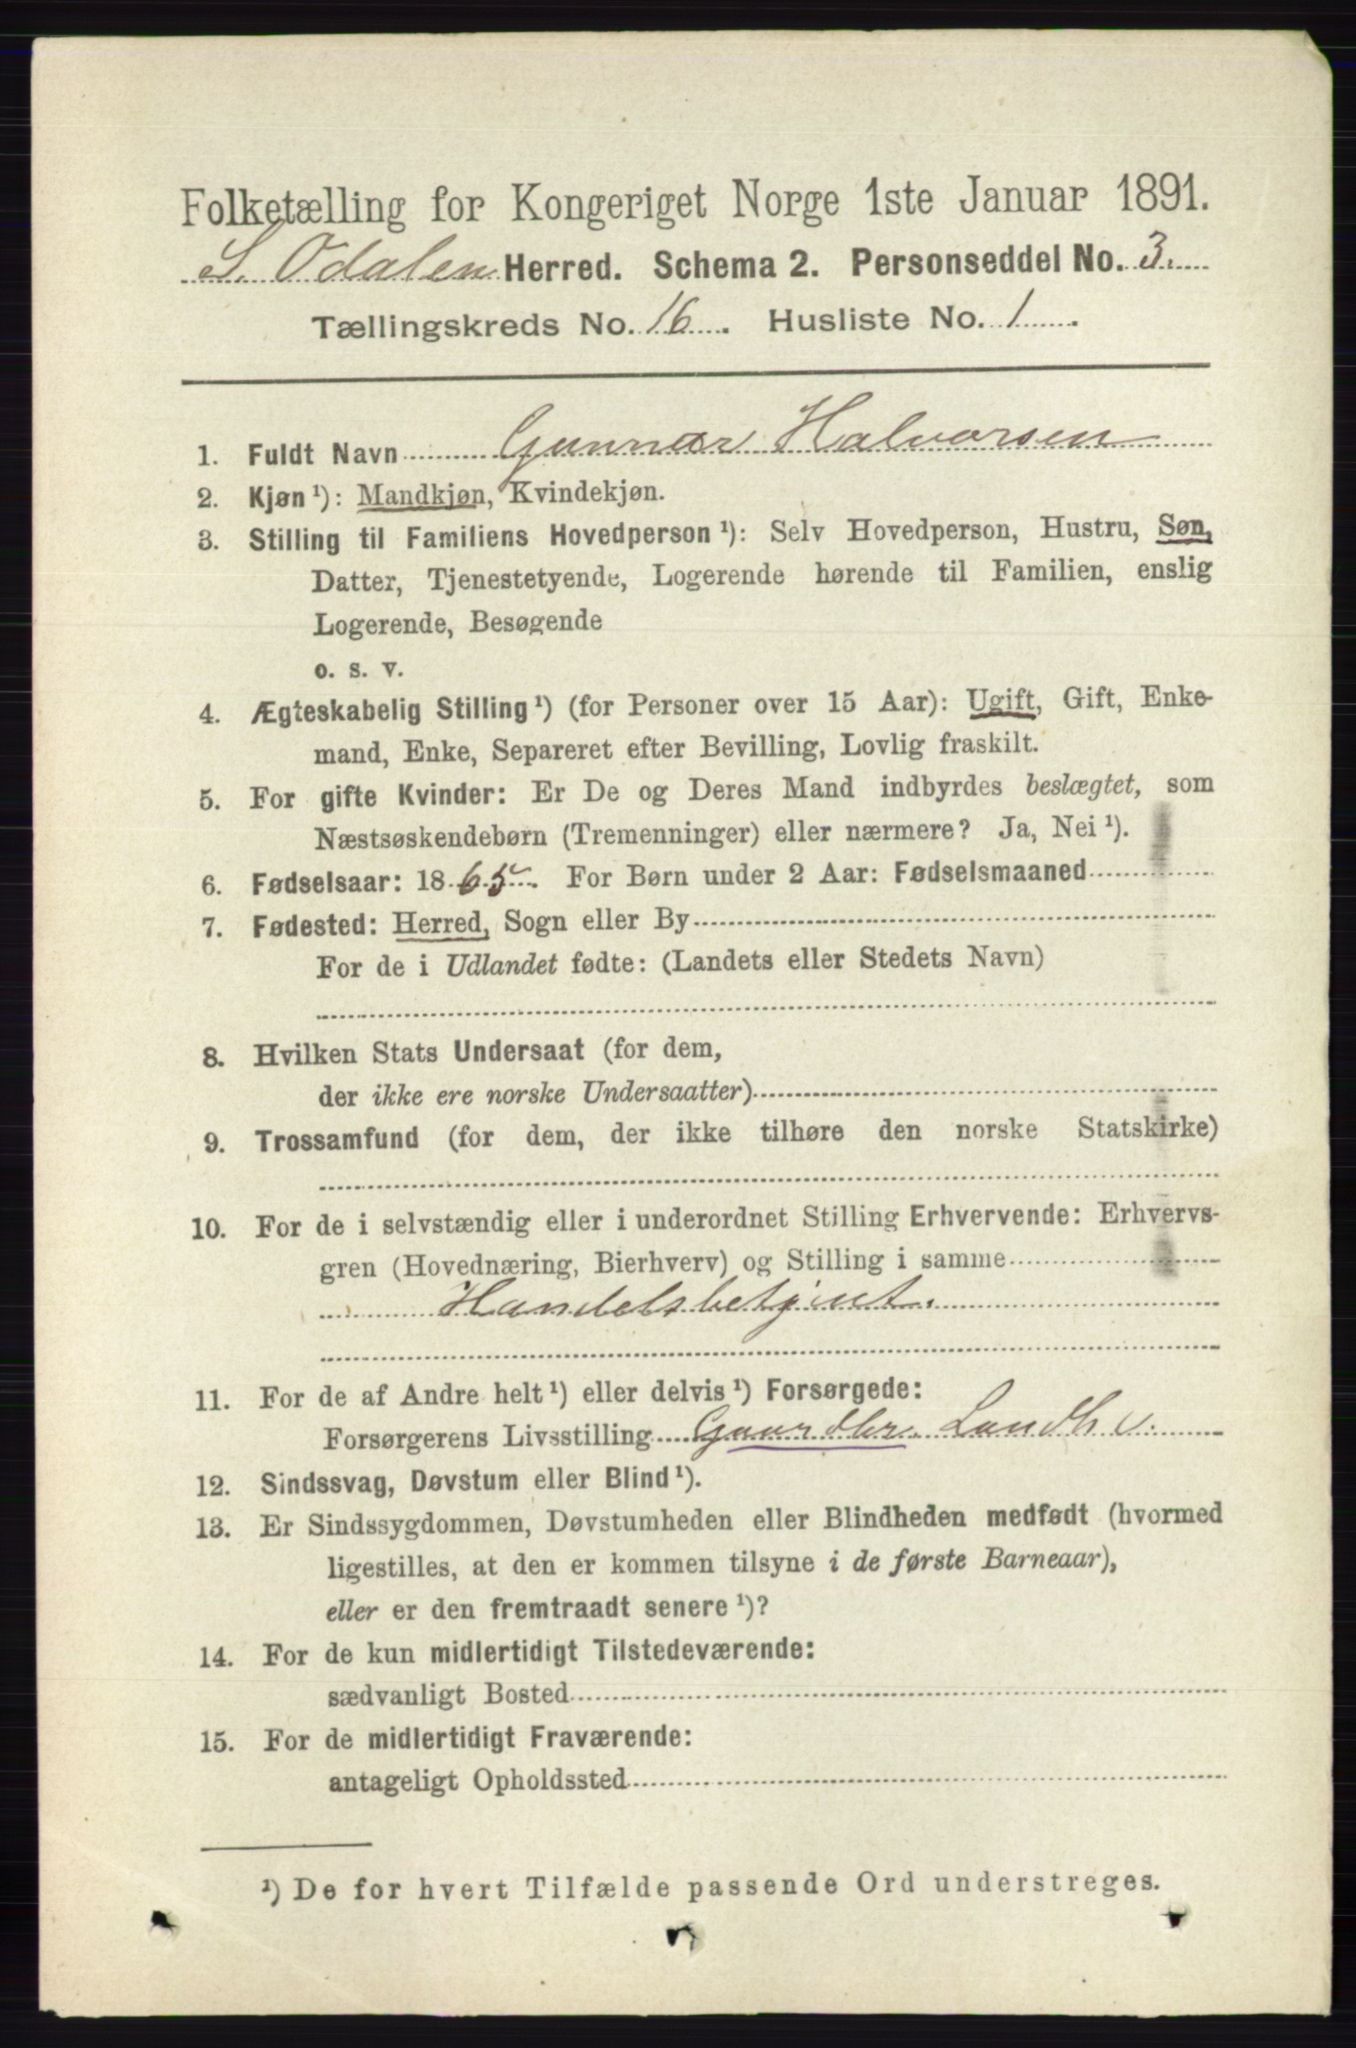 Folketælling for Kongeriget Norge 1ste Januar 1891.
S. Odalen Herred. Schema 2. Personseddel No. 3.
Tællingskreds No. 16. Husliste No. 1.
1. Fuldt Navn Gunnar Halvorsen
2. Kjøn ¹): Mandkjøn, Kvindekjøn.
3. Stilling til Familiens Hovedperson ¹): Selv Hovedperson, Hustru, Søn,
Datter, Tjenestetyende, Logerende hørende til Familien, enslig
Logerende, Besøgende
o. s. v.
4. Ægteskabelig Stilling ¹) (for Personer over 15 Aar): Ugift, Gift, Enke-
mand, Enke, Separeret efter Bevilling, Lovlig fraskilt.
5. For gifte Kvinder: Er De og Deres Mand indbyrdes beslægtet, som
Næstsøskendebørn (Tremenninger) eller nærmere? Ja, Nei ¹).
6. Fødselsaar: 1865. For Børn under 2 Aar: Fødselsmaaned
7. Fødested: Herred, Sogn eller By
For de i Udlandet fødte: (Landets eller Stedets Navn)
8. Hvilken Stats Undersaat (for dem,
der ikke ere norske Undersaatter)
9. Trossamfund (for dem, der ikke tilhøre den norske Statskirke)
10. For de i selvstændig eller i underordnet Stilling Erhvervende: Erhvervs-
gren (Hovednæring, Bierhverv) og Stilling i samme
Handelsbetjent.
11. For de af Andre helt ¹) eller delvis ¹) Forsørgede:
Forsørgerens Livsstilling Gaardbr. Landh v.
12. Sindssvag, Døvstum eller Blind ¹).
13. Er Sindssygdommen, Døvstumheden eller Blindheden medfødt (hvormed
ligestilles, at den er kommen tilsyne i de første Barneaar),
eller er den fremtraadt senere ¹)?
14. For de kun midlertidigt Tilstedeværende:
sædvanligt Bosted
15. For de midlertidigt Fraværende:
antageligt Opholdssted
¹) De for hvert Tilfælde passende Ord understreges.